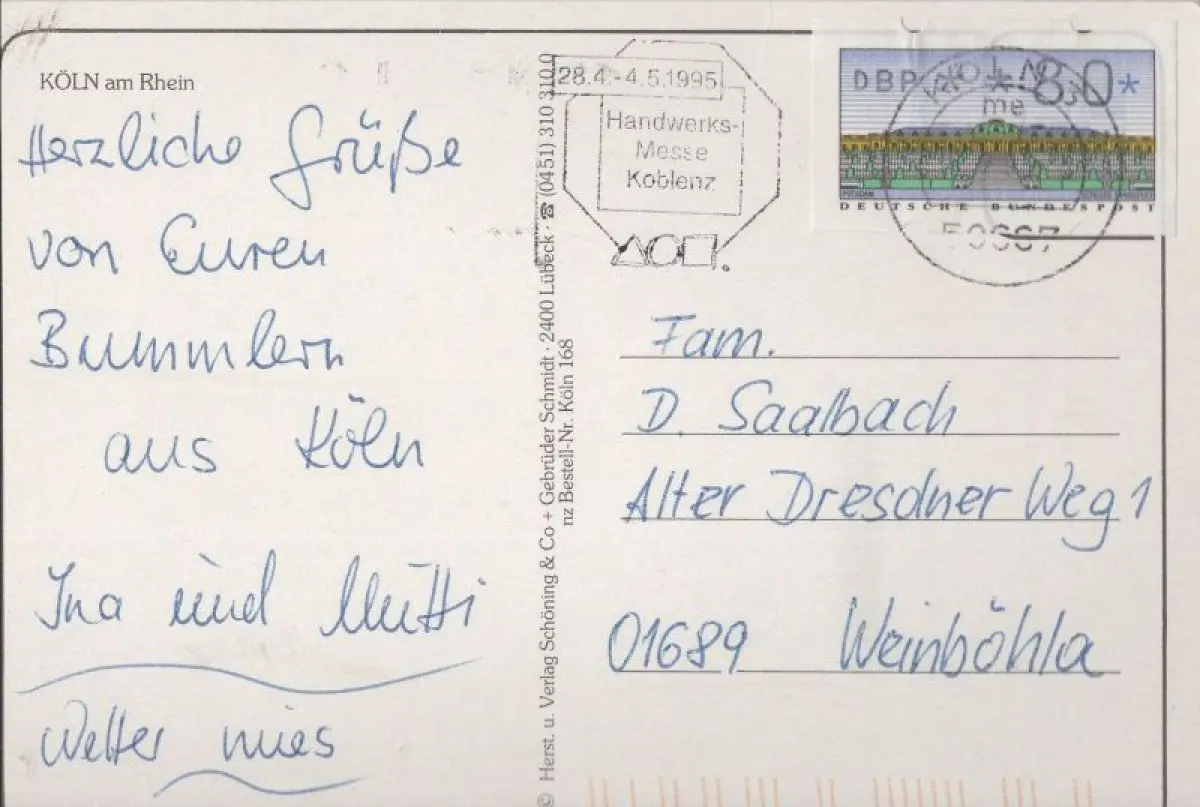 KÖLN am Rhein
Herzliche Grüße
von Euren
Bummlern
aus Köln
Ina und Mutti
Wetter mies
© Herst. u. Verlag Schöning & Co + Gebrüder Schmidt · 2400 Lübeck · ☎ (0451) 310 310
nz Bestell-Nr. Köln 168
28.4.-4.5.1995
Handwerks-
Messe
Koblenz
DBP * * 80 *
DEUTSCHE BUNDESPOST
KÖLN
me
50667
Fam.
D. Saalbach
Alter Dresdner Weg 1
01689 Weinböhla